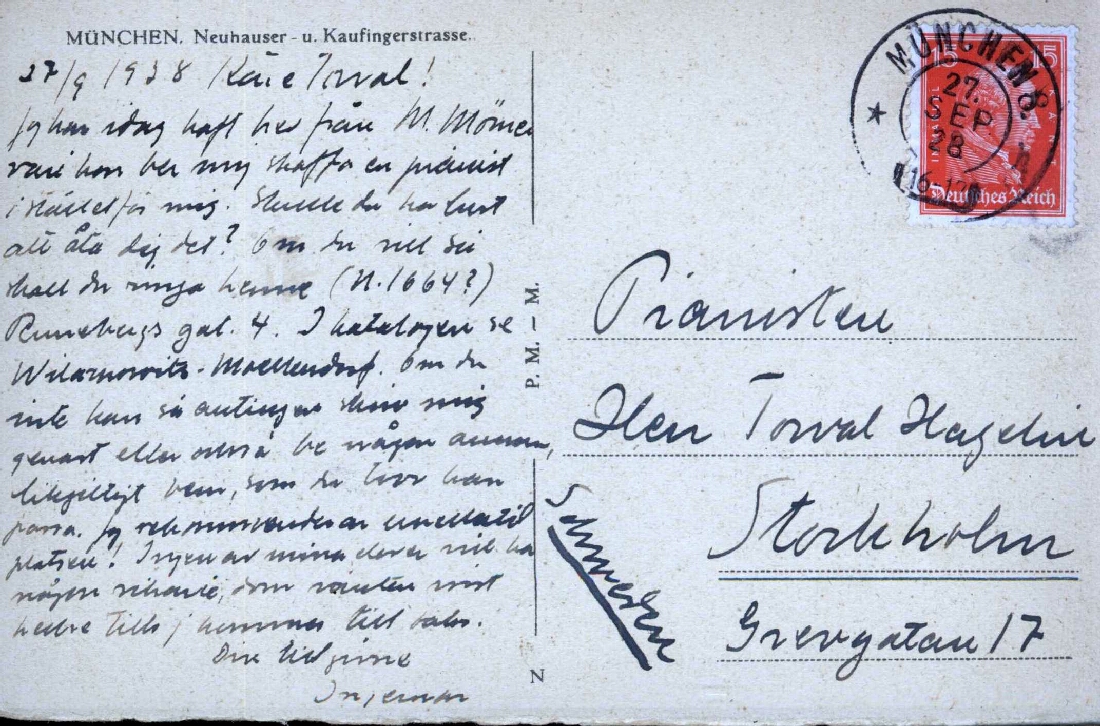 MÜNCHEN. Neuhauser- u. Kaufingerstrasse.
27/9 1928 Käre Torval!
Jg har idag haft brev från M. Mörner
vari hon ber mig skaffa en pianist
i stället för mig. Skulle du ha lust
att åta dig det? Om du vill så
skall du ringa henne (N. 1664?)
Runebergs gat. 4. I katalogen se
Wilamowitz-Moellendorf. Om du
inte kan så antingen skriv mig
genast eller också be någon annan,
likgiltigt vem, som du tror kan
passa. Jg rekommenderar emellertid
platsen! Ingen av mina elever vill ha
någon vikarie, dom väntar visst
hellre tills j kommer till baka.
Din tillgivne
Ingemar
P. M. – M.
N
MÜNCHEN 8.
27.
SEP
28
15 15
Deutsches Reich
Pianisten
Herr Torval Hagelin
Stockholm
Grevgatan 17
Schweden